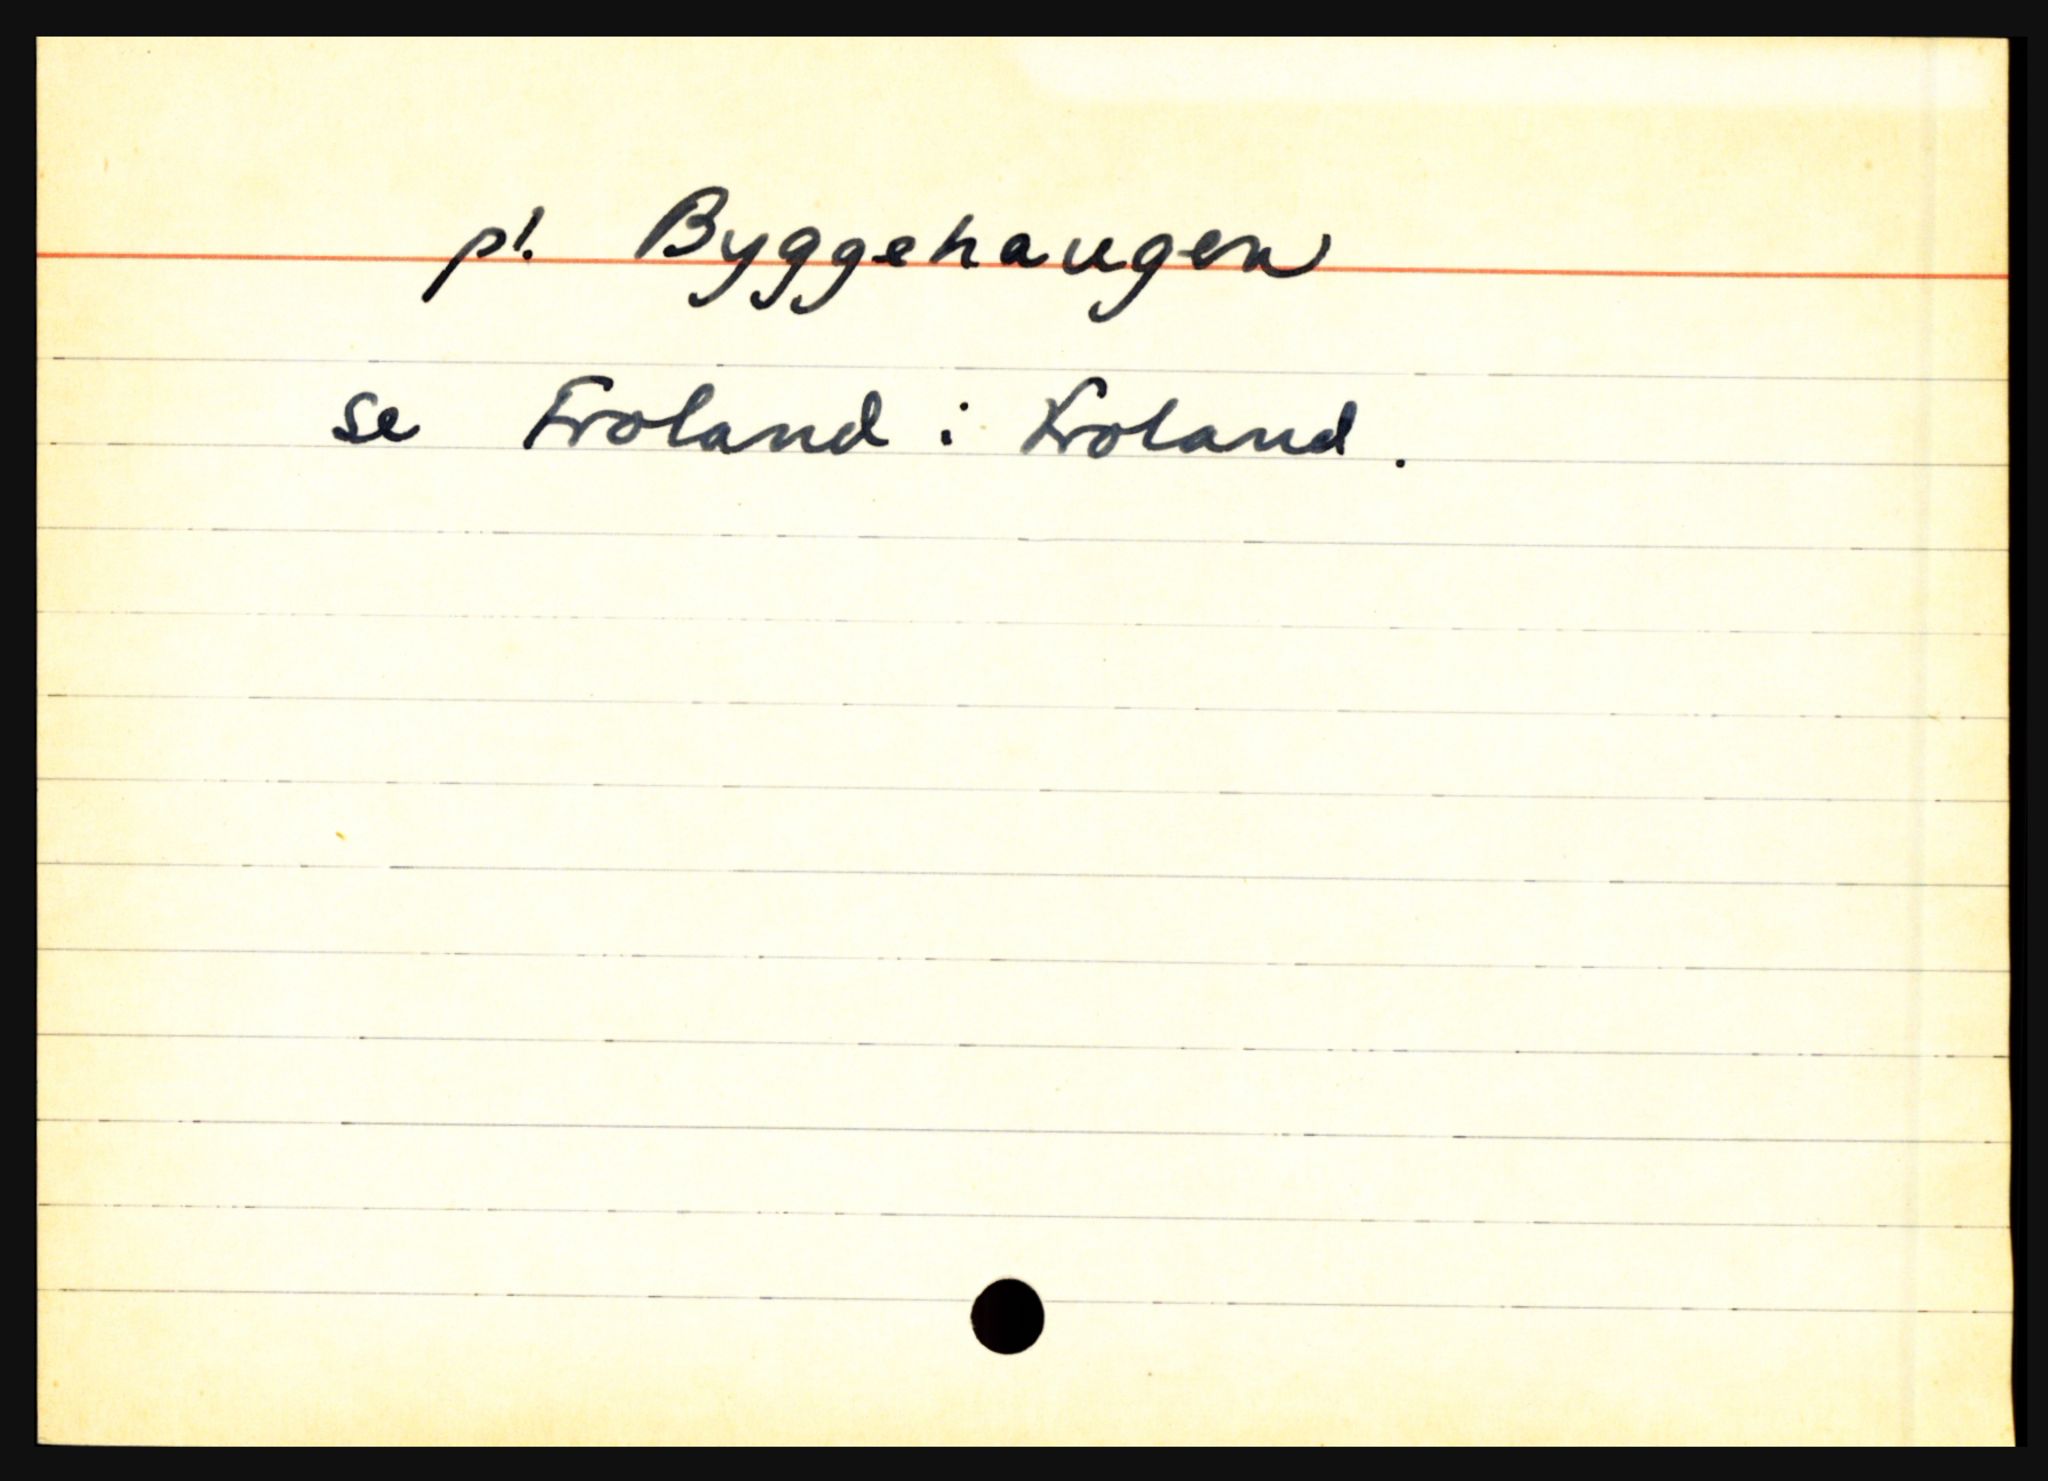 pl. Byggehaugen
se Froland i Froland.